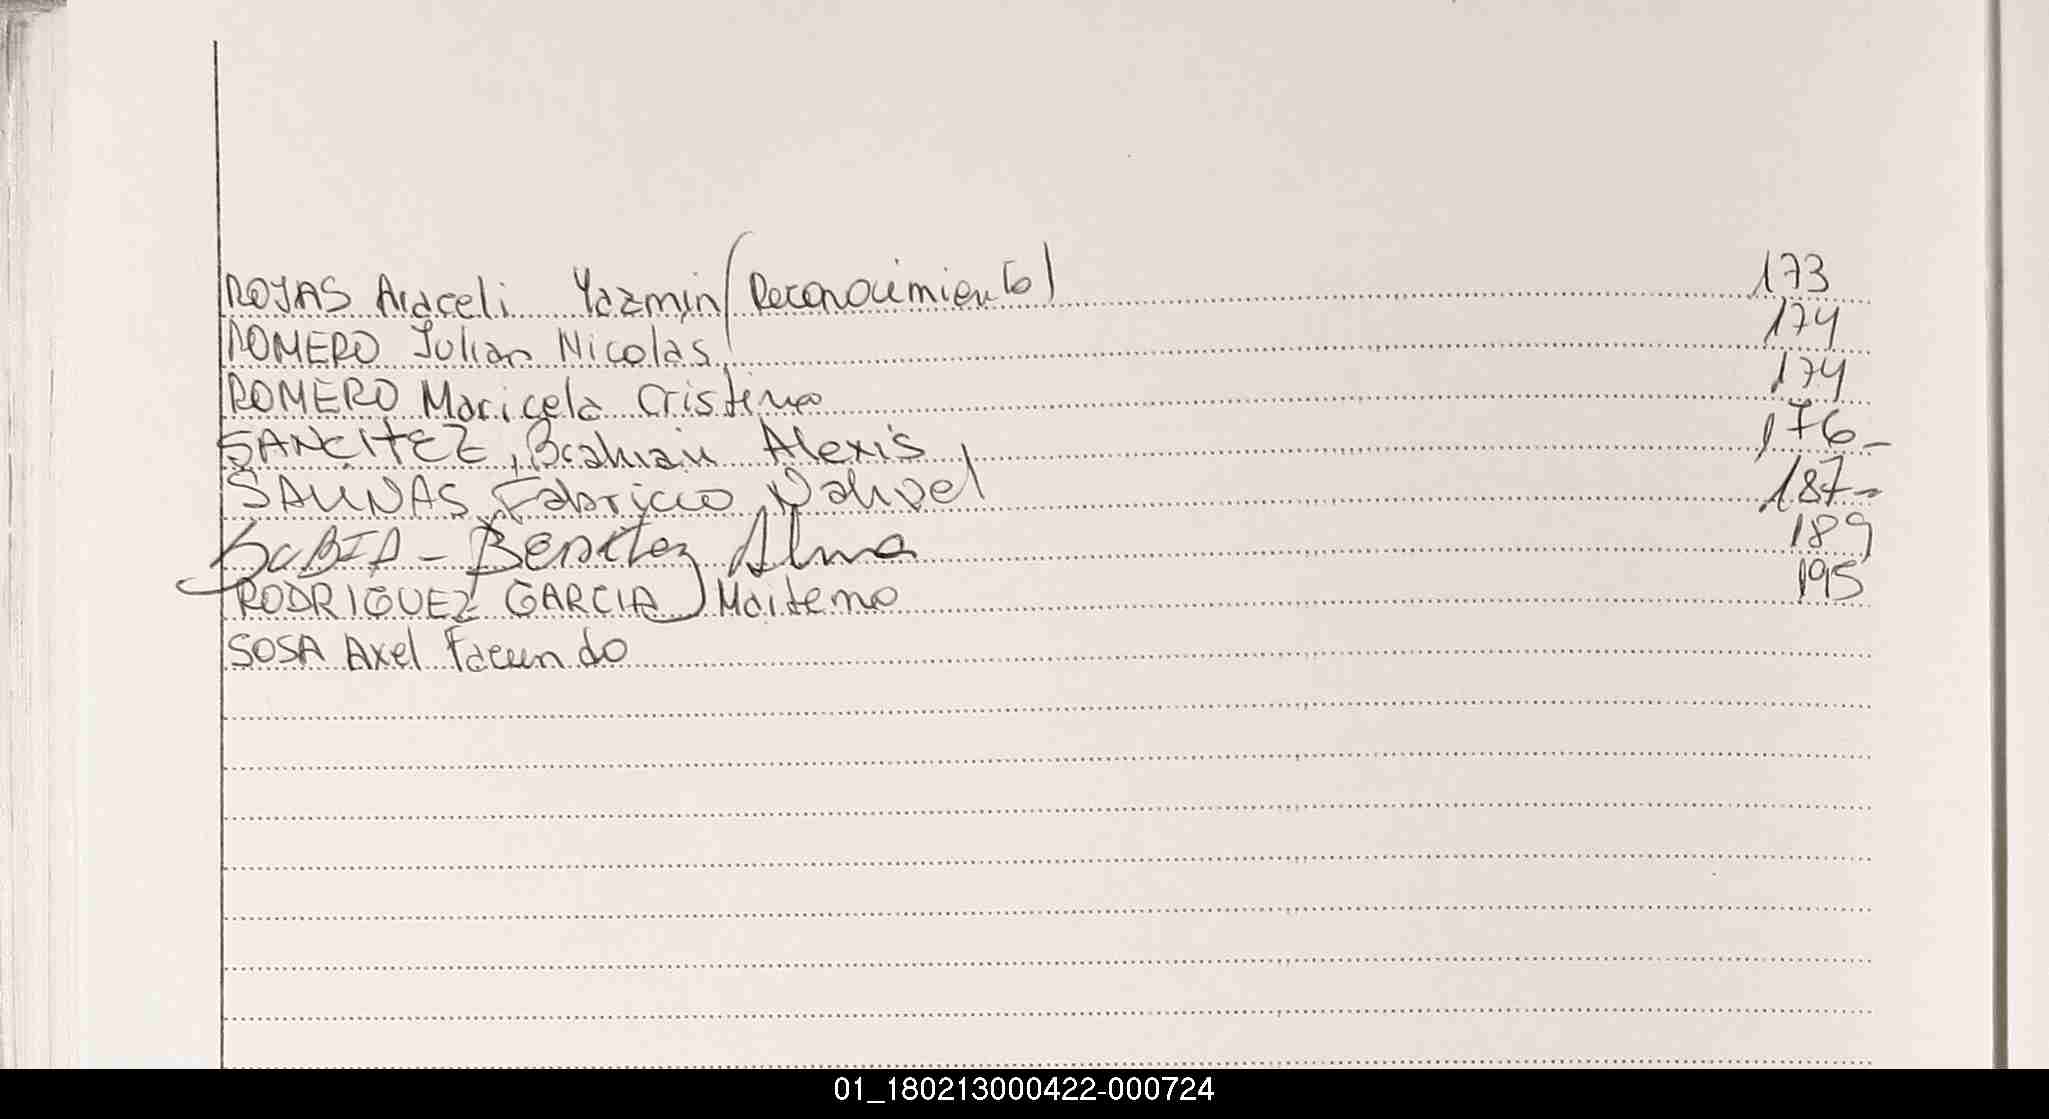 ROJAS Araceli Yazmin (Reconocimiento) 173
ROMERO Julian Nicolas 174
ROMERO Maricela Cristina 174
SANCHEZ, Brahian Alexis 176-
SALINAS, Fabricio Nahuel 187-
SUBIA - Benitez Alma 189
RODRIGUEZ GARCIA Maitena 195
SOSA Axel Facundo
01_180213000422-000724